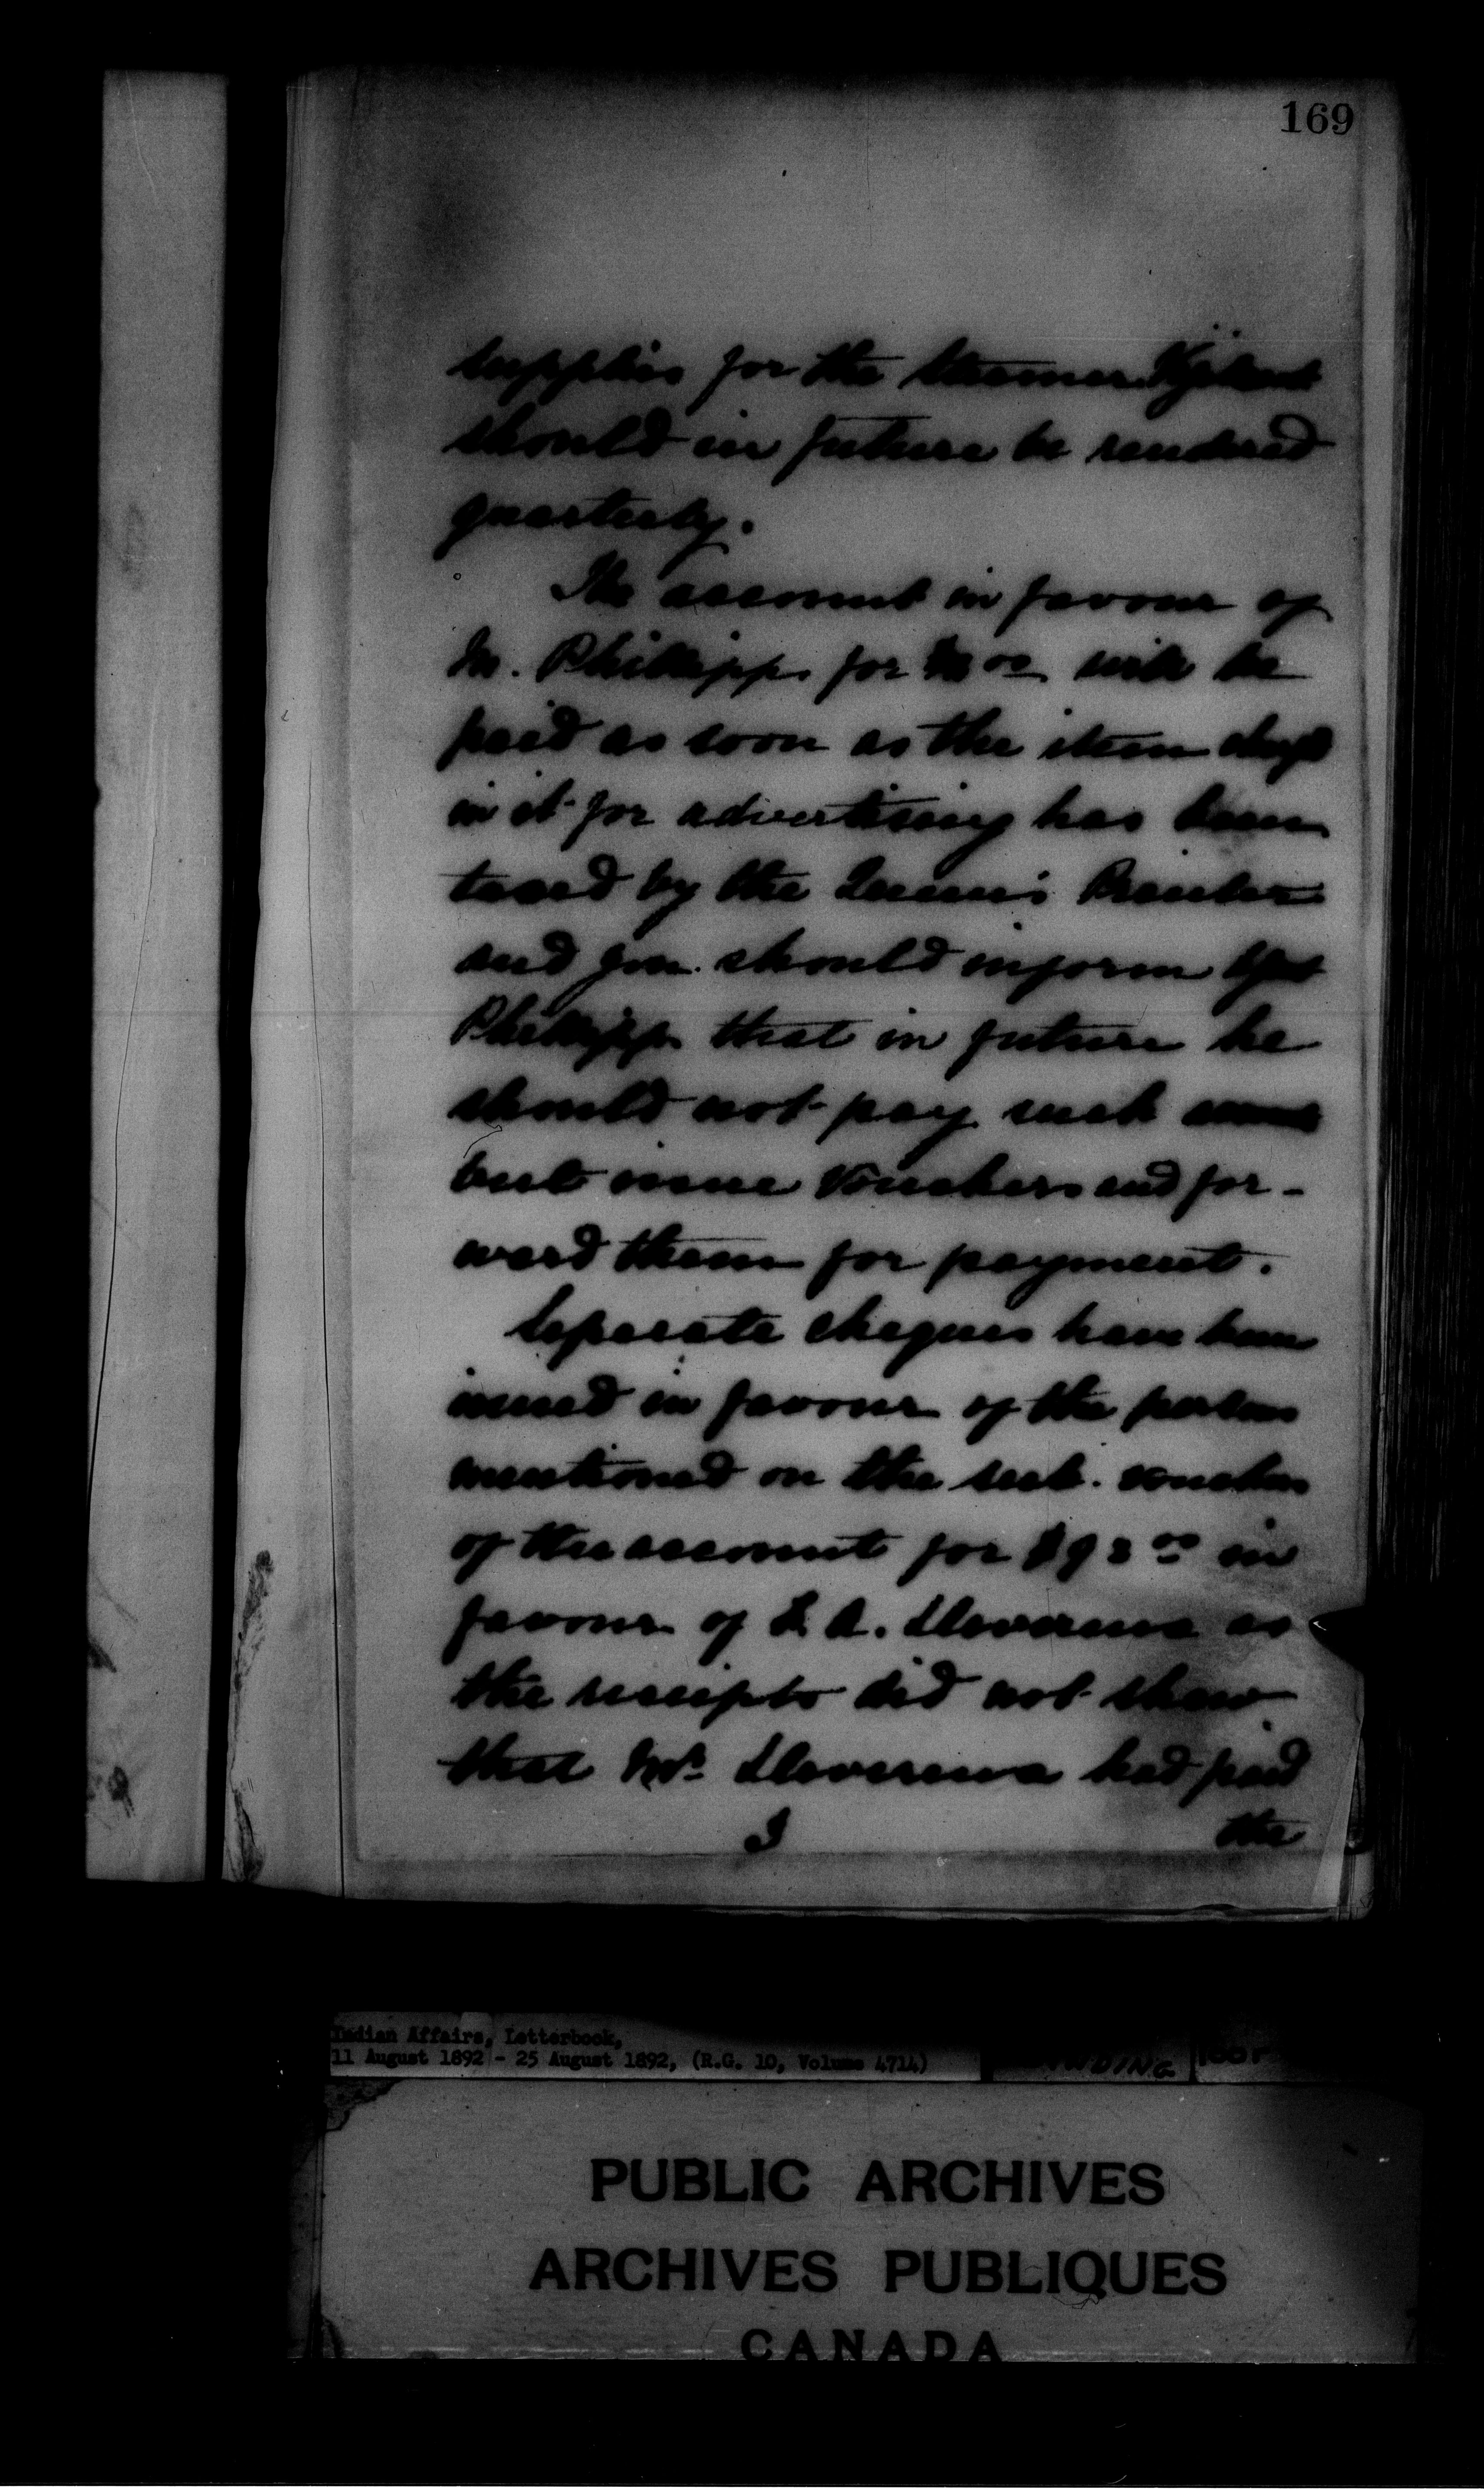 169
supplies for the steamer Vigilant
should in future be rendered
quarterly.
The account in favour of
M. Phillipps for will be
paid as soon as the item chgd
in it for advertising has been
taxed by the Queen's Printer
and you should inform Agent
Phillipps that in future he
should not pay such
but issue vouchers and for-
ward them for payment.
Separate cheques have been
issued in favour of the persons
mentioned on the sub. vouchers
of the account for in
favour of A. Devereux as
the receipts did not show
that Mr. Devereux had paid
the
Indian Affairs, Letterbook,
11 August 1892 - 25 August 1892, (R.G. 10, Volume 4714)
PUBLIC ARCHIVES
ARCHIVES PUBLIQUES
CANADA